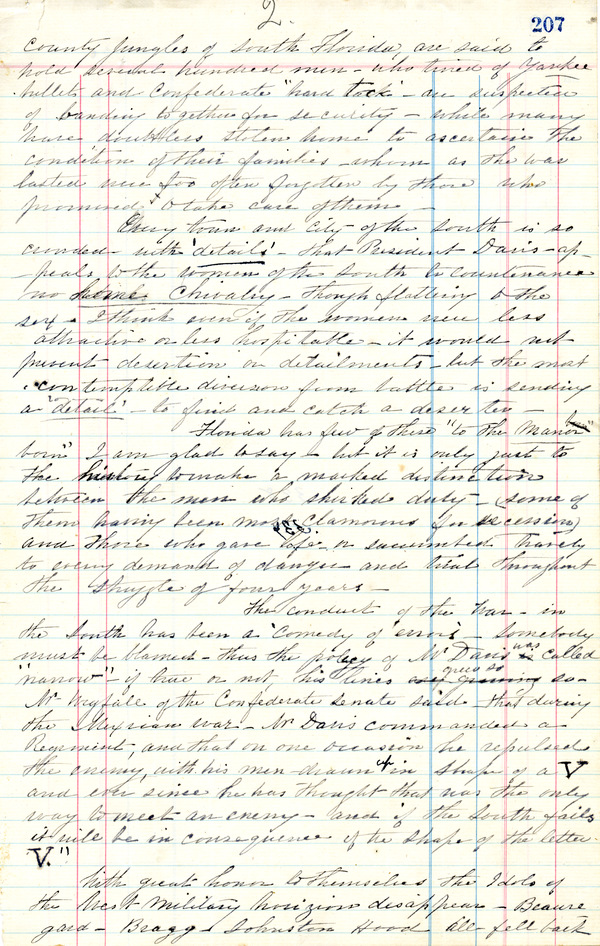 2.
207
County jungles of South Florida, are said to
hold several hundred men - who tired of Yankee
bullets and Confederate "hard tack" - are suspected
of banding together for security - while many
have doubtless stolen home to ascertain the
condition of their families - whom as the war
lasted were too often forgotten by those who
promised to take care of them -
Every town and city of the South is so
crowded with 'details' - that President Davis - ap-
-peals to the women of the South to countenance
no Chivalry - though flattering to the
sex - I think even if the women were less
attractive or less hospitable - it would not
prevent desertion or detailments - but the most
contemptible diversion from battle is sending
a "detail" - to find and catch a deserter -
Florida has few of these "to the Manor
born" I am glad to say - but it is only just to
the history to make a marked distinction
between the men who shirked duty - (some of
them having been most clamorous for secession)
and those who gave life or succumbed bravely
to every demand of danger and trial throughout
the struggle of four years -
The conduct of the War - in
the South has been a 'Comedy of errors' - Somebody
must be blamed - thus the policy of Mr Davis was called
"narrow" - if true or not, his lines grew so
Mr Wigfall of the Confederate senate said that during
the Mexican war - Mr Davis commanded a
Regiment, and that on one occasion he repulsed
the enemy, with his men drawn up in shape of a V
and ever since he has thought that was the only
way to meet an enemy - and if the South fails
it will be in consequence of the shape of the letter
V."
With great honor to themselves the Idols of
the West Military horizion disappear - Beaure
gard - Bragg Johnston Hood all fell back